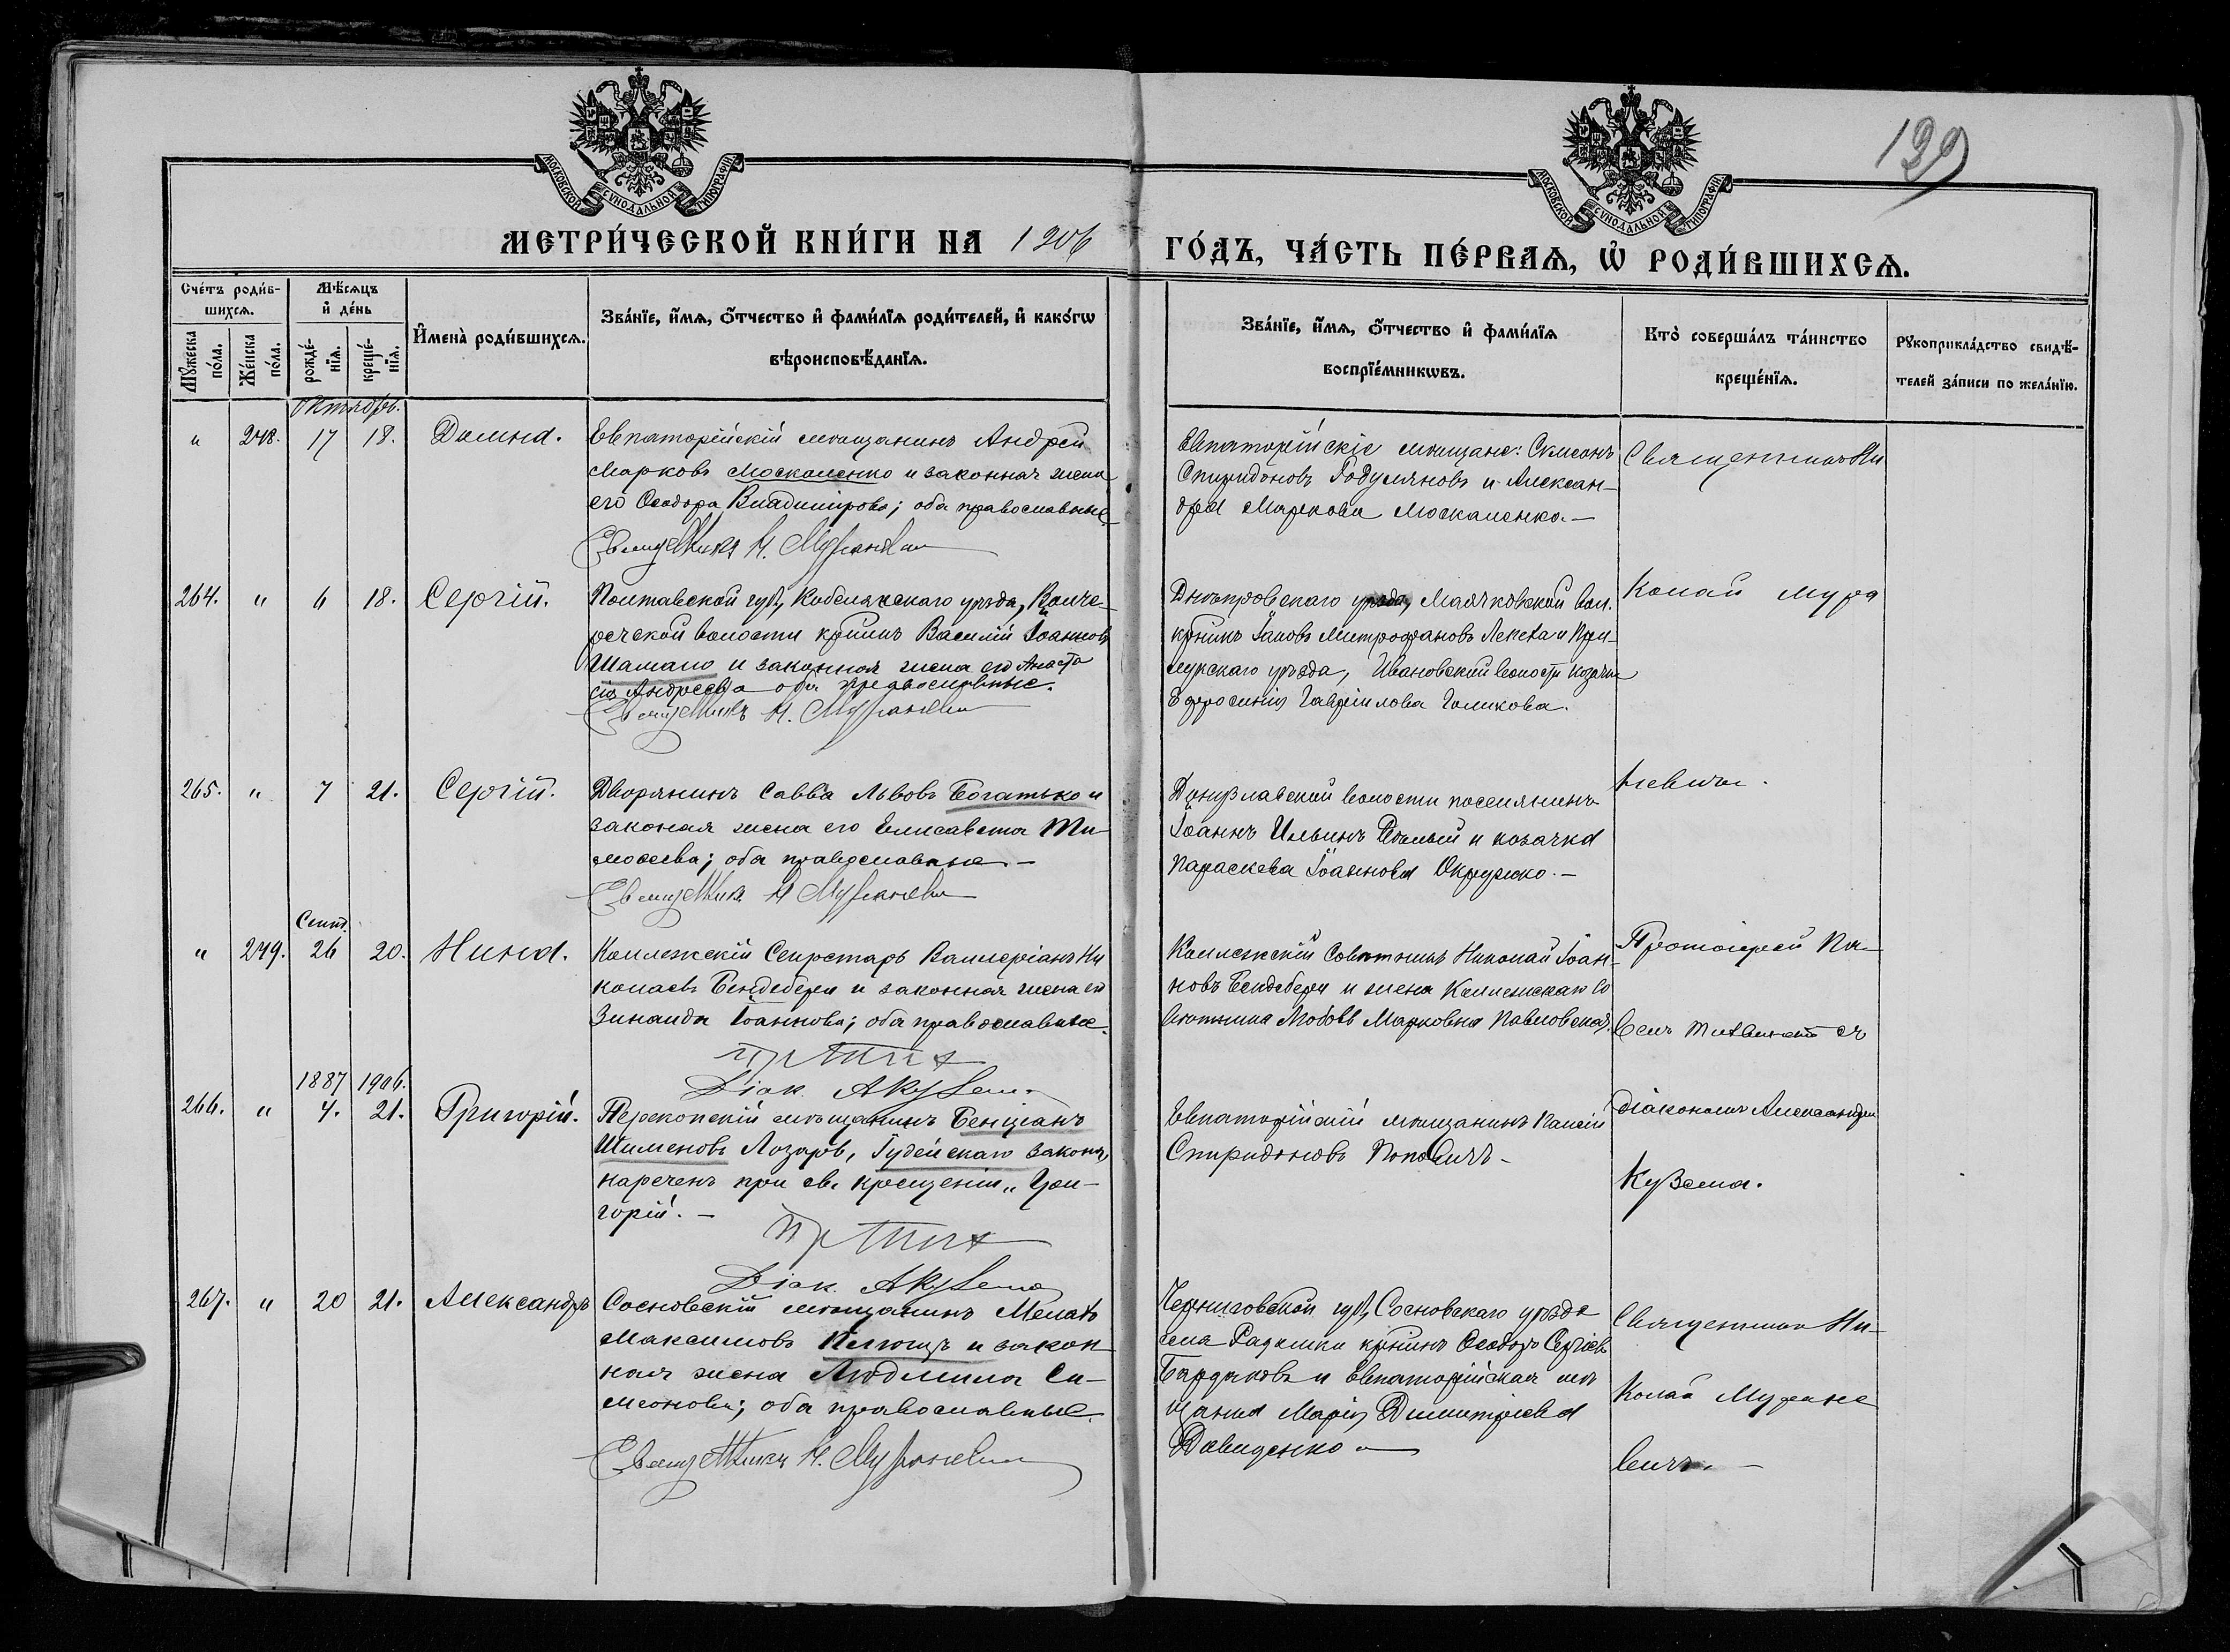 199
МОСКОВСКОЙ СУНОДАЛЬНОЙ ТИПОГРАФІИ
МОСКОВСКОЙ СУНОДАЛЬНОЙ ТИПОГРАФІИ
МЕТРИ́ЧЕСКОЙ КНИ́ГИ НА 1906
ГО́ДЪ, ЧА́СТЬ ПЕ́РВАѦ, Ѡ҆ РОДИ́ВШИХСѦ.
Сче́тъ роди́в-
шихсѧ.
Мꙋжеска по́ла.
Же́нска по́ла.
Мѣ́сѧцъ
и҆ де́нь
рожде́-
нїѧ.
креще́-
нїѧ.
И҆мена̀ роди́вшихсѧ.
Зва́нїе, и҆́мѧ, ѻ҆́тчество и҆ фами́лїѧ роди́телей, и҆ како́гѡ
вѣроисповѣ́данїѧ.
Зва́нїе, и҆́мѧ, ѻ҆́тчество и҆ фами́лїѧ
воспрїе́мникѡвъ.
Кто̀ соверша́лъ та́инство
креще́нїѧ.
Рꙋкоприкла́дство свидѣ́-
телей за́писи по жела́нїю.
Октябрь.
" 248. 17 18. Домна.
Евпаторійскій мѣщанинъ Андрей
Марковъ Москаленко и законная жена
его Ѳеодора Владимірова; оба православные
Священникъ Н. Мураневи
Евпаторійскіе мѣщане: Сѵмеонъ
Спиридоновъ и Алексан-
дра Маркова Москаленко. —
Священникъ Ни
264. " 6 18. Сергій.
Полтавской губ, Кобелякскаго уѣзда,
волости крнинъ Василій Іоанновъ
Шамало и законная жена его Анаста
сія Андреева оба православные.
Священникъ Н. Мураневи
Днѣпровскаго уѣзда, Маячковской вол.
крнинъ Іаковъ Митрофановъ и
уѣзда, Ивановской волости козачка
Евфросинія Гавріилова Голикова.
колай Мура
265. " 7 21. Сергій.
Дворянинъ Савва Львовъ Богатько и
законая жена его Елисавета Ти-
моѳеева; оба православные —
Священникъ Н Мураневи
Донузлавской волости поселянинъ
Іоаннъ Ильинъ и козачка
Параскева Іоаннова —
невичъ.
Сент.
" 249. 26 20. Нина.
Коллежскій Секретарь Валлеріанъ Ни
колаевъ Бендебери и законная жена его
Зинаида Іоаннова; оба православные.
Діак. А Кузема
Коллежскій Совѣтникъ Николай Іоан-
новъ Бендебери и жена Коллежскаго Со
вѣтника Любовь Марковна Павловская.
Протоіерей Па-
велъ съ
1887 1906.
266. " 4. 21. Григорій.
Перекопскій мѣщанинъ Бенціанъ
Шименовъ Лозаровъ, Іудейскаго закона,
нареченъ при св. крещеніи „Гри-
горій. —
Діак. А Кузема
Евпаторійскій мѣщанинъ
Спиридоновъ Поповичъ —
діакономъ Александр
Кузема.
267. " 20 21. Александръ
Сосновскій мѣщанинъ
Максимовъ и закон
ная жена Людмила Си-
меонова; оба православные
Священникъ Н. Мураневи
Черниговской губ, Сосновскаго уѣзда
села крнинъ Ѳеодоръ Сергіевъ
и Евпаторійская мѣ
щанка Марія Димитріева
Давиденко —
Священникъ Ни-
колай Муране
вичъ. —